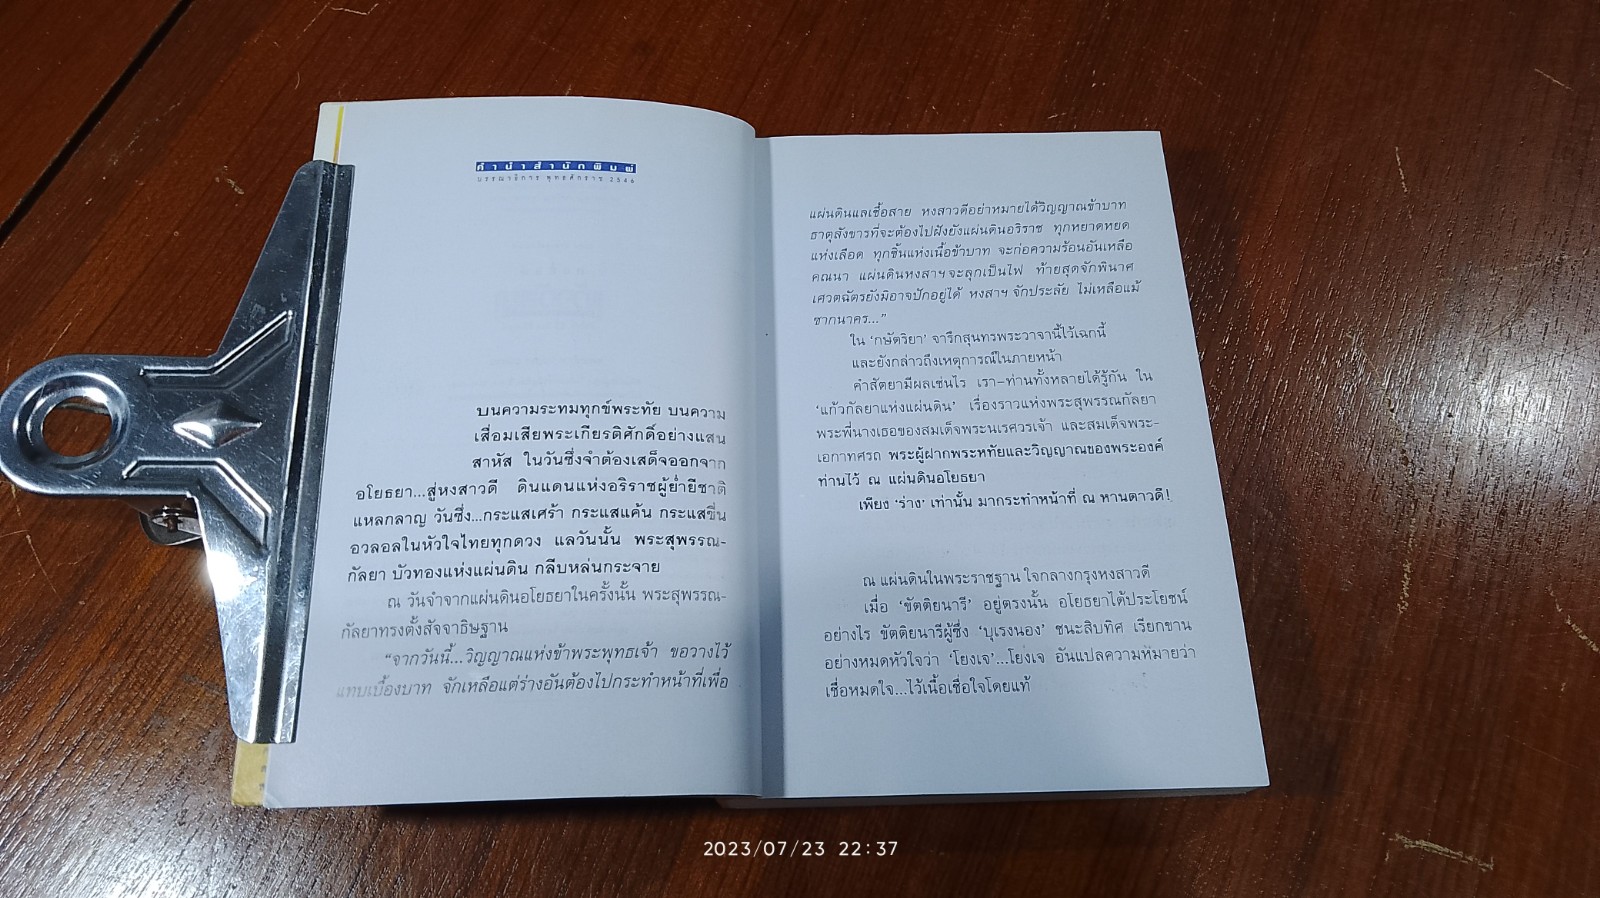 คำนำสำนักพิมพ์
บรรณาธิการ พุทธศักราช 2546
บนความระทมทุกข์พระทัย บนความ
เสื่อมเสียพระเกียรติศักดิ์อย่างแสน
สาหัส ในวันซึ่งจำต้องเสด็จออกจาก
อโยธยา...สู่หงสาวดี ดินแดนแห่งอริราชผู้ย่ำยีชาติ
แหลกลาญ วันซึ่ง...กระแสเศร้า กระแสแค้น กระแสขื่น
อวลอลในหัวใจไทยทุกดวง แลวันนั้น พระสุพรรณ-
กัลยา บัวทองแห่งแผ่นดิน กลีบหล่นกระจาย
ณ วันจำจากแผ่นดินอโยธยาในครั้งนั้น พระสุพรรณ-
กัลยาทรงตั้งสัจจาธิษฐาน
“จากวันนี้...วิญญาณแห่งข้าพระพุทธเจ้า ขอวางไว้
แทบเบื้องบาท จักเหลือแต่ร่างอันต้องไปกระทำหน้าที่เพื่อ
แผ่นดินแลเชื้อสาย หงสาวดีอย่าหมายได้วิญญาณข้าบาท
ธาตุสังขารที่จะต้องไปฝังยังแผ่นดินอริราช ทุกหยาดหยด
แห่งเลือด ทุกชิ้นแห่งเนื้อข้าบาท จะก่อความร้อนอันเหลือ
คณนา แผ่นดินหงสาฯ จะลุกเป็นไฟ ท้ายสุดจักพินาศ
เศวตฉัตรยังมิอาจปักอยู่ได้ หงสาฯ จักประลัย ไม่เหลือแม้
ซากนาคร...”
ใน ‘กษัตริยา’ จารึกสุนทรพระวาจานี้ไว้เฉกนี้
และยังกล่าวถึงเหตุการณ์ในภายหน้า
คำสัตยามีผลเช่นไร เรา–ท่านทั้งหลายได้รู้กัน ใน
‘แก้วกัลยาแห่งแผ่นดิน’ เรื่องราวแห่งพระสุพรรณกัลยา
พระพี่นางเธอของสมเด็จพระนเรศวรเจ้า และสมเด็จพระ-
เอกาทศรถ พระผู้ฝากพระหทัยและวิญญาณของพระองค์
ท่านไว้ ณ แผ่นดินอโยธยา
เพียง ‘ร่าง’ เท่านั้น มากระทำหน้าที่ ณ หานตาวดี!
ณ แผ่นดินในพระราชฐาน ใจกลางกรุงหงสาวดี
เมื่อ ‘ขัตติยนารี’ อยู่ตรงนั้น อโยธยาได้ประโยชน์
อย่างไร ขัตติยนารีผู้ซึ่ง ‘บุเรงนอง’ ชนะสิบทิศ เรียกขาน
อย่างหมดหัวใจว่า ‘โยงเจ’...โยงเจ อันแปลความหมายว่า
เชื่อหมดใจ...ไว้เนื้อเชื่อใจโดยแท้
2023/07/23 22:37